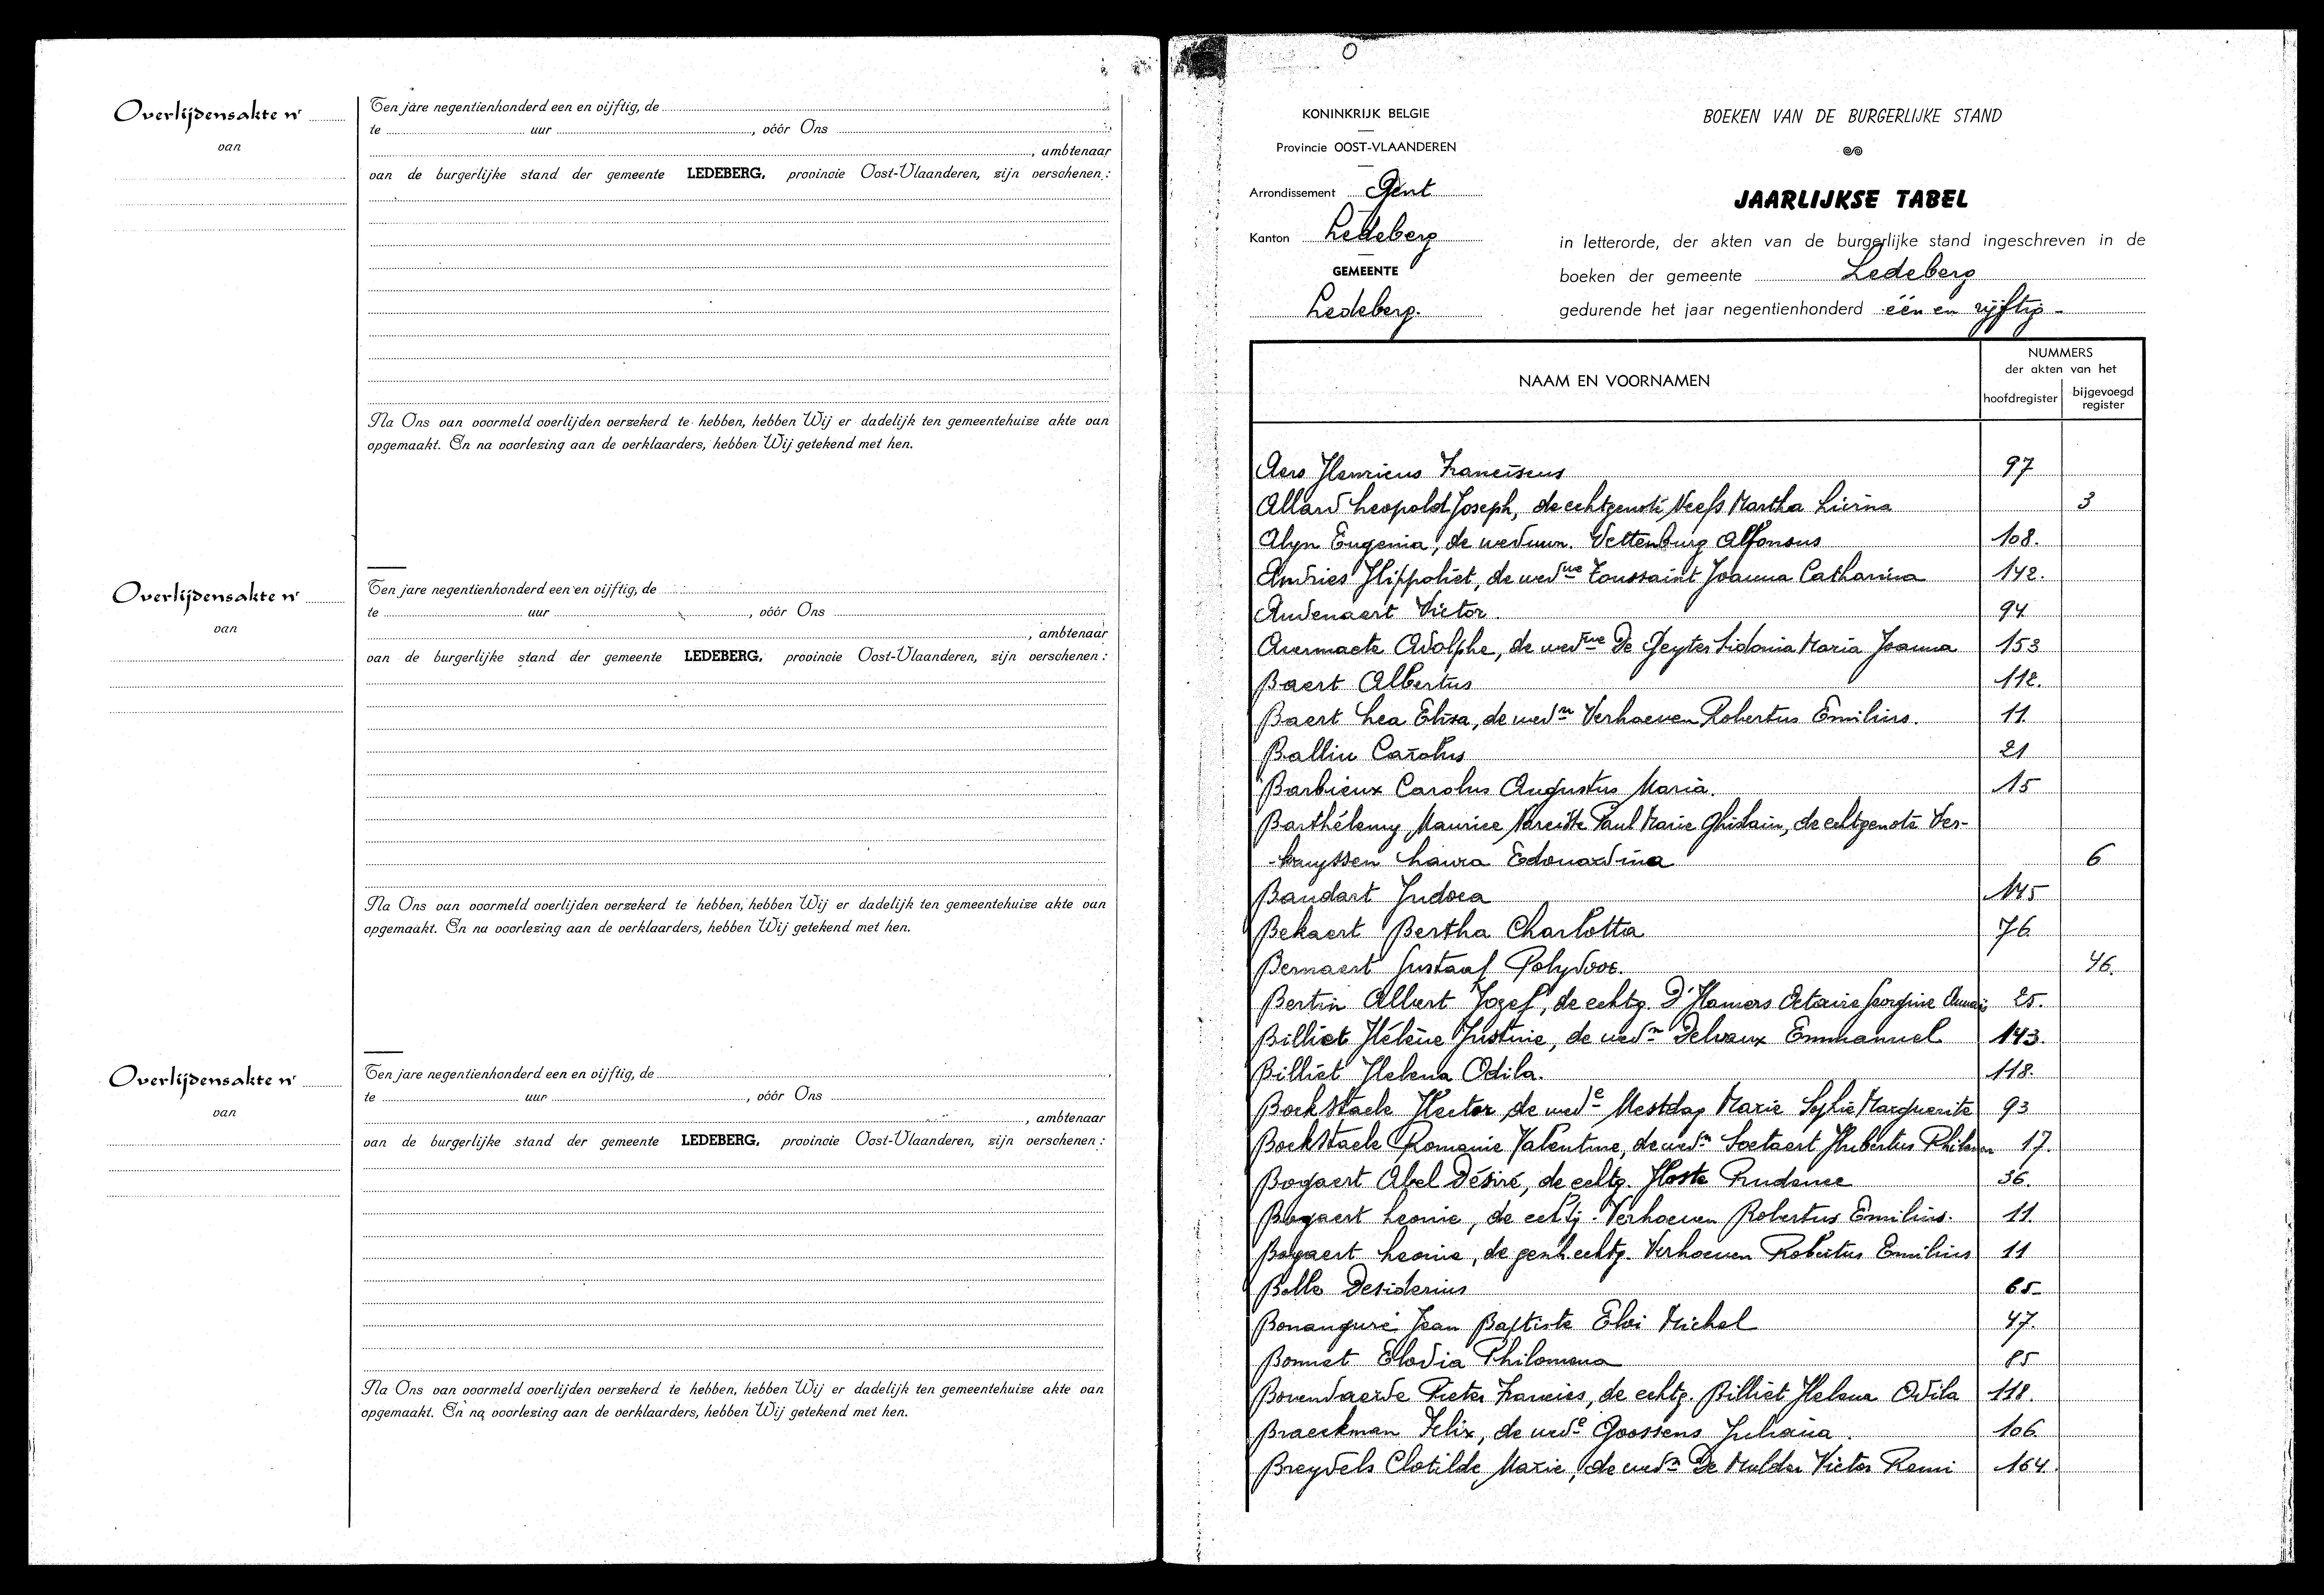 Overlijdensakte nr
van
Ten jare negentienhonderd een en vijftig, de
te uur , vóór Ons
, ambtenaar
van de burgerlijke stand der gemeente LEDEBERG, provincie Oost-Vlaanderen, zijn verschenen :
Na Ons van voormeld overlijden verzekerd te hebben, hebben Wij er dadelijk ten gemeentehuize akte van
opgemaakt. En na voorlezing aan de verklaarders, hebben Wij getekend met hen.
Overlijdensakte nr
van
Ten jare negentienhonderd een en vijftig, de
te uur , vóór Ons
, ambtenaar
van de burgerlijke stand der gemeente LEDEBERG, provincie Oost-Vlaanderen, zijn verschenen :
Na Ons van voormeld overlijden verzekerd te hebben, hebben Wij er dadelijk ten gemeentehuize akte van
opgemaakt. En na voorlezing aan de verklaarders, hebben Wij getekend met hen.
Overlijdensakte nr
van
Ten jare negentienhonderd een en vijftig, de
te uur , vóór Ons
, ambtenaar
van de burgerlijke stand der gemeente LEDEBERG, provincie Oost-Vlaanderen, zijn verschenen :
Na Ons van voormeld overlijden verzekerd te hebben, hebben Wij er dadelijk ten gemeentehuize akte van
opgemaakt. En na voorlezing aan de verklaarders, hebben Wij getekend met hen.
KONINKRIJK BELGIE
Provincie OOST-VLAANDEREN
Arrondissement Gent
Kanton Ledeberg
GEMEENTE
Ledeberg.
BOEKEN VAN DE BURGERLIJKE STAND
JAARLIJKSE TABEL
in letterorde, der akten van de burgerlijke stand ingeschreven in de
boeken der gemeente Ledeberg
gedurende het jaar negentienhonderd één en vijftig -
NAAM EN VOORNAMEN
NUMMERS
der akten van het
hoofdregister
bijgevoegd
register
Aers Henricus Franciscus 97
Allard Leopold Joseph, de echtgenote Neefs Martha Livina 3
Alyn Eugenia, de weduwn. Vettenburg Alfonsus 108.
Andries Hippoliet, de wedwe Toussaint Joanna Catharina 142.
Audenaert Victor. 94
Avermaete Adolphe, de wedwe De Geyter Sidonia Maria Joanna 153
Baert Albertus 112.
Baert Lea Elisa, de wedn Verhoeven Robertus Emilius. 11
Balliu Carolus 21
Barbieux Carolus Augustus Maria. 15
Barthélemy Maurice Narcisse Paul Marie Ghislain, de echtgenote Ver-
-kruyssen Laura Edouardina 6
Baudart Judoca 145
Bekaert Bertha Charlotta 76
Bernaert Gustaaf Polydoor. 46.
Bertin Albert Jozef, de echtg. D'Hamers Octavie Georgine 25.
Billiet Hélène Justine, de wedn Delvaux Emmanuel 143.
Billiet Helena Odila. 118.
Bockstaele Hector de wede Mestdag Marie Sylvie Marguerite 93
Bockstaele Romanie Valentine, de wedn Soetaert Hubertus 17.
Bogaert Abel Désiré, de echtg. Hoste Prudence 36.
Bogaert Leonie, de echtg. Verhoeven Robertus Emilius. 11.
Bogaert Leonie, de gesch. echtg. Verhoeven Robertus Emilius 11
Bolle Desiderius 65
Bonanguré Jean Baptiste Eloi Michel 47.
Bonnet Elodia Philomena 85
Bovendaerde Pieter Francies, de echtg. Billiet Helena Odila 118.
Braeckman Felix, de wede Goossens Juliana. 106
Breydels Clotilde Marie, de wedn De Mulder Victor Remi 164.